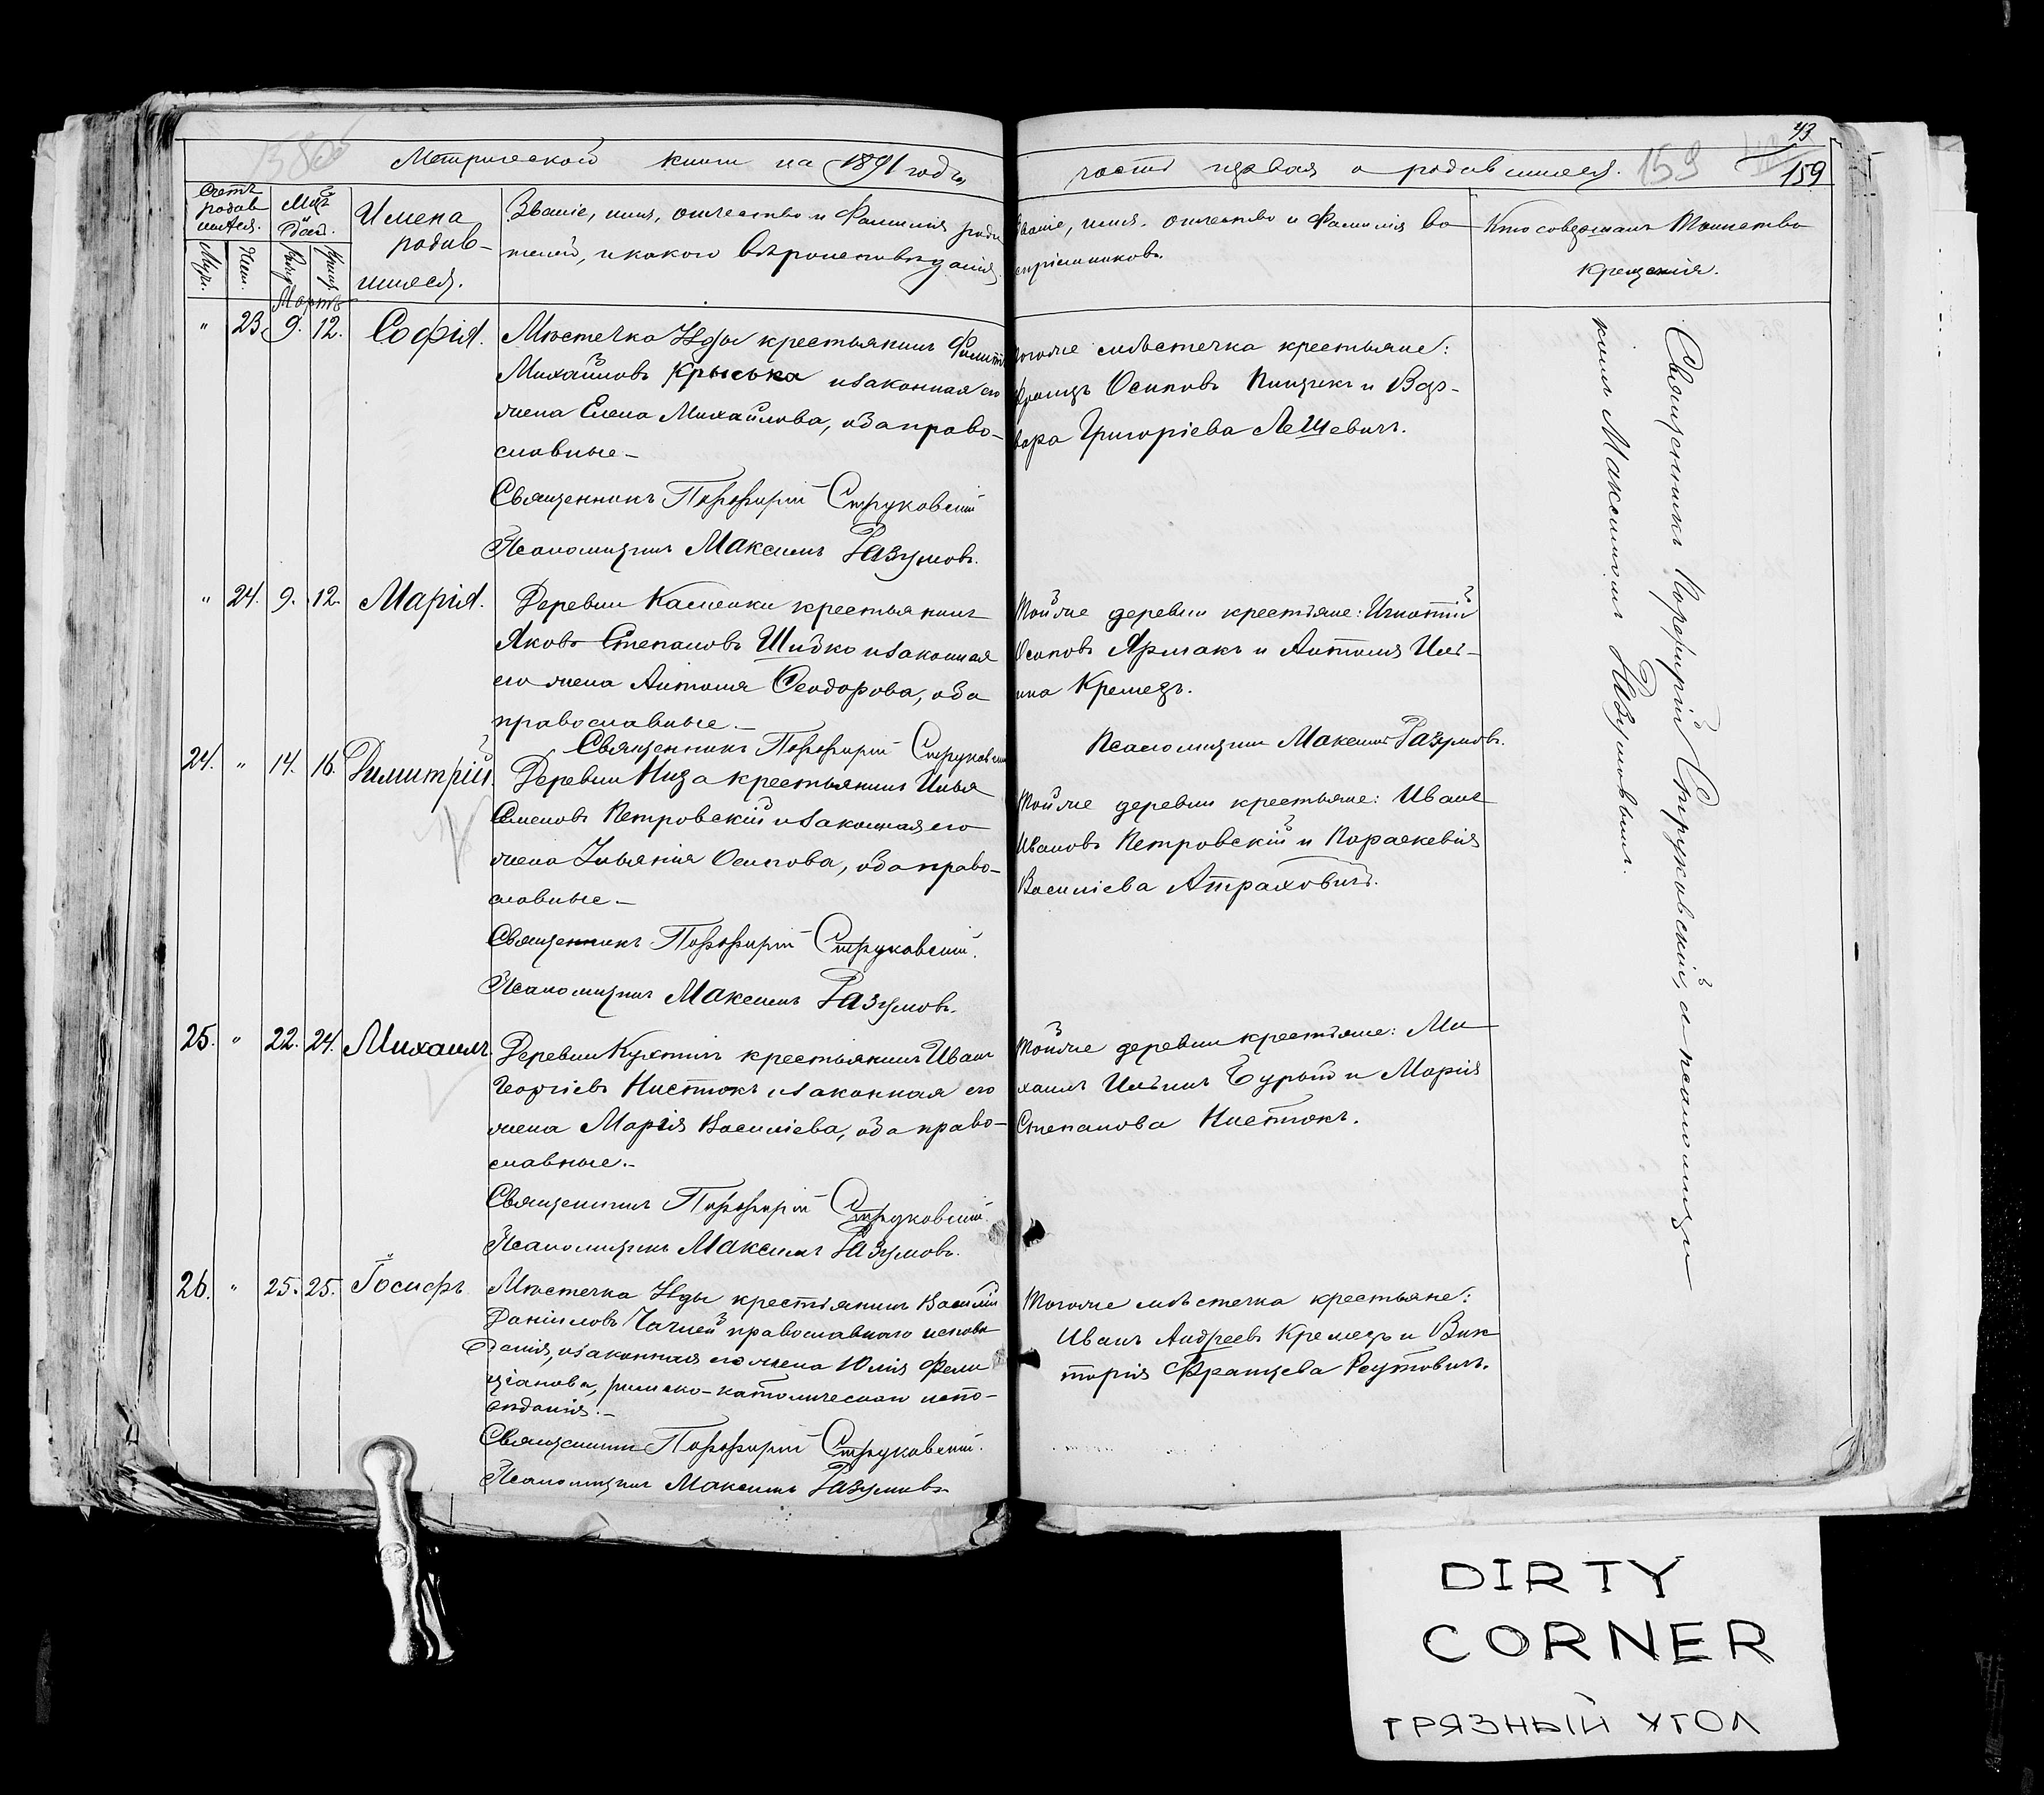 43
159
159
Метрической книги на 1891 годъ,
часть первая о родившихся.
Счетъ родившихся.
Муж.
Жен.
Мѣс. и день
Рожд.
Крещ.
Мартъ
Имена родив-
шихся.
Званіе, имя, отчество и фамилія роди
телей, и какого вѣроисповѣданія.
Званіе, имя, отчество и фамилія во
спріемниковъ.
Кто совершалъ таинство
крещенія.
" 23. 9. 12. Софія.
Мѣстечка Узды крестьянинъ
Михайловъ Крыська и законная его
жена Елена Михайлова, оба право-
славные —
Священникъ Порфирій Струковскій
Псаломщикъ Максимъ Разумовъ.
Того же мѣстечка крестьяне:
Францъ Осиповъ Пищикъ и Вар-
вара Григоріева Лешевичъ.
" 24. 9. 12. Марія.
Деревни Каменки крестьянинъ
Яковъ Степановъ Шидко и законная
его жена Антонія Ѳеодорова, оба
православные. —
Священникъ Порфирій Струковскій
Той же деревни крестьяне: Игнатій
Осиповъ Ярмакъ и Антонія Иль-
ина Кремезъ.
Псаломщикъ Максимъ Разумовъ.
24. " 14. 16. Димитрій.
Деревни Низа крестьянинъ Илья
Семеновъ Петровскій и законная его
жена Ульянія Осипова, оба право-
славные —
Священникъ Порфирій Струковскій.
Псаломщикъ Максимъ Разумовъ.
Той же деревни крестьяне: Иванъ
Ивановъ Петровскій и Параскевія
Василіева Атраховичъ.
25. " 22. 24. Михаилъ.
Деревни Кухтичъ крестьянинъ Иванъ
Георгіевъ Нистюкъ и законная его
жена Марія Василіева, оба право-
славные. —
Священникъ Порфирій Струковскій.
Псаломщикъ Максимъ Разумовъ.
Той же деревни крестьяне: Ми
хаилъ Ильинъ Бурый и Марія
Степанова Нистюкъ.
26. " 25. 25. Іосифъ
Мѣстечка Узды крестьянинъ Василій
Даніиловъ православнаго исповѣ
данія, и законная его жена Юлія Фели
ціанова, римско-католическаго испо-
вѣданія. —
Священникъ Порфирій Струковскій.
Псаломщикъ Максимъ Разумовъ
Того же мѣстечка крестьяне:
Иванъ Андреевъ Кремезъ и Вик
торія Францева Реутовичъ.
Священникъ Порфирій Струковскій, и псаломщи
комъ Максимомъ Разумовымъ.
DIRTY
CORNER
ГРЯЗНЫЙ УГОЛ